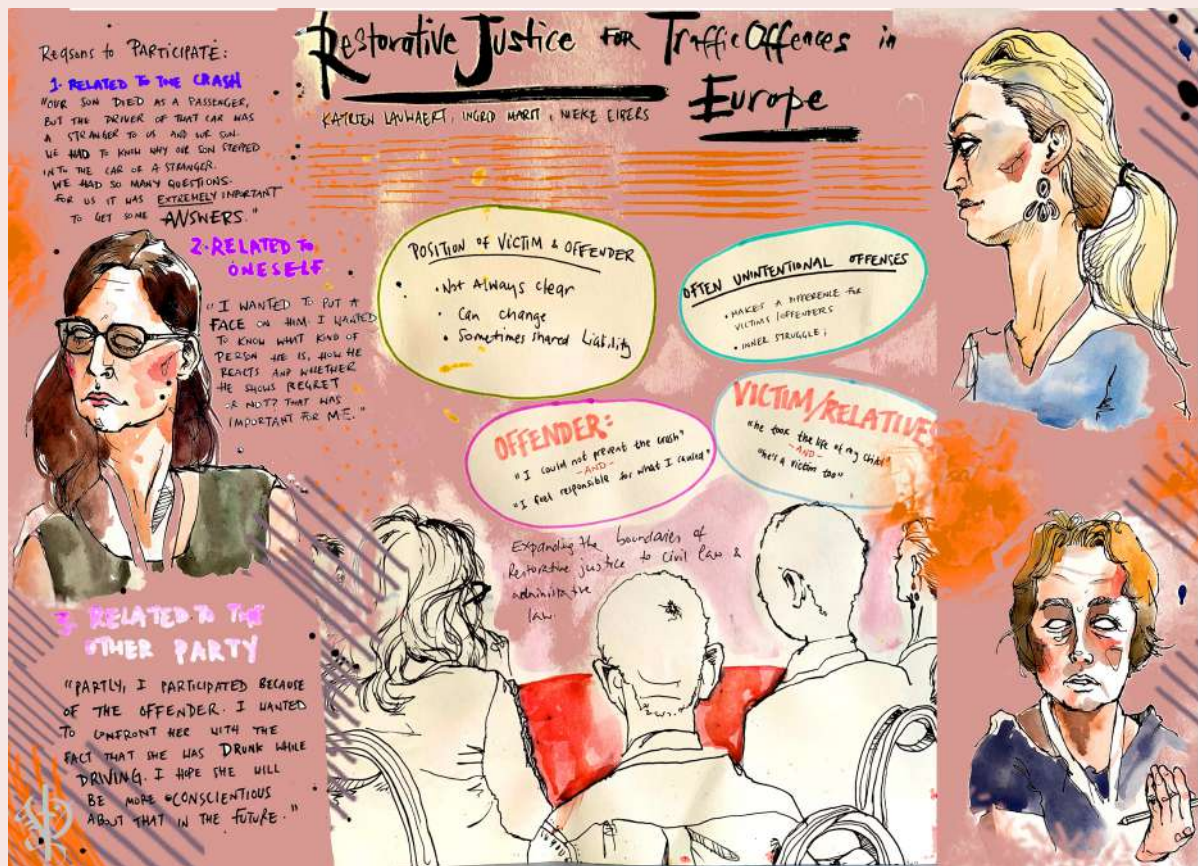 Restorative Justice for Traffic Offences in
Europe
KATRIEN LAUWAERT, INGRID MARIT, NIEKE ELBERS
Reasons to PARTICIPATE:
1. RELATED TO THE CRASH
"OUR SON DIED AS A PASSENGER,
BUT THE DRIVER OF THAT CAR WAS
A STRANGER TO US AND OUR SON.
WE HAD TO KNOW WHY OUR SON STEPPED
INTO THE CAR OF A STRANGER.
WE HAD SO MANY QUESTIONS.
FOR US IT WAS EXTREMELY IMPORTANT
TO GET SOME ANSWERS."
2. RELATED TO
ONESELF
"I WANTED TO PUT A
FACE ON HIM. I WANTED
TO KNOW WHAT KIND OF
PERSON HE IS, HOW HE
REACTS AND WHETHER
HE SHOWS REGRET
OR NOT? THAT WAS
IMPORTANT FOR ME."
3. RELATED TO THE
OTHER PARTY
"PARTLY, I PARTICIPATED BECAUSE
OF THE OFFENDER. I WANTED
TO CONFRONT HER WITH THE
FACT THAT SHE WAS DRUNK WHILE
DRIVING. I HOPE SHE WILL
BE MORE CONSCIENTIOUS
ABOUT THAT IN THE FUTURE."
POSITION OF VICTIM & OFFENDER
• Not Always clear
• Can change
• Sometimes shared Liability
OFTEN UNINTENTIONAL OFFENSES
• MAKES A DIFFERENCE FOR
VICTIMS/OFFENDERS
• INNER STRUGGLE;
OFFENDER:
"I could not prevent the crash"
-AND-
"I feel responsible for what I caused"
VICTIM/RELATIVE
"he took the life of my child"
-AND-
"he's a victim too"
Expanding the boundaries of
Restorative justice to Civil law &
administrative
law.